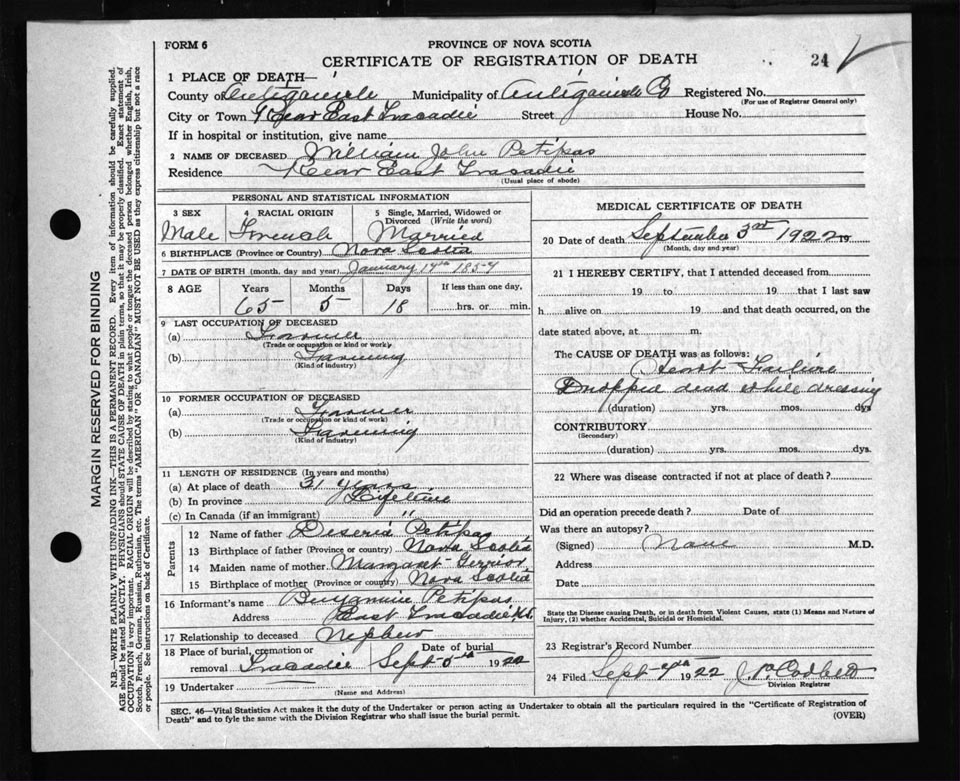 FORM 6
PROVINCE OF NOVA SCOTIA
CERTIFICATE OF REGISTRATION OF DEATH
24
1 PLACE OF DEATH—
County of Antigonish Municipality of Antigonish Co Registered No.
(For use of Registrar General only)
City or Town Rear East Tracadie Street House No.
If in hospital or institution, give name
2 NAME OF DECEASED William John Petipas
Residence Rear East Tracadie
(Usual place of abode)
PERSONAL AND STATISTICAL INFORMATION
3 SEX 4 RACIAL ORIGIN 5 Single, Married, Widowed or
Divorced (Write the word)
Male French Married
6 BIRTHPLACE (Province or Country) Nova Scotia
7 DATE OF BIRTH (month, day and year) January 14th 1857
8 AGE Years Months Days If less than one day,
65 5 18 hrs. or min.
9 LAST OCCUPATION OF DECEASED
(a) Farmer
(Trade or occupation or kind or work)
(b) Farming
(Kind of industry)
10 FORMER OCCUPATION OF DECEASED
(a) Farmer
(Trade or occupation or kind of work)
(b) Farming
(Kind of industry)
11 LENGTH OF RESIDENCE (In years and months)
(a) At place of death 31 years
(b) In province Lifetime
(c) In Canada (if an immigrant) "
Parents
12 Name of father Deserie Petipas
13 Birthplace of father (Province or country) Nova Scotia
14 Maiden name of mother Margaret Gerrior
15 Birthplace of mother (Province or country) Nova Scotia
16 Informant's name Benjamine Petipas
Address East Tracadie, N.S.
17 Relationship to deceased Nephew
18 Place of burial, cremation or Date of burial
removal Tracadie Sept 5th 1922
19 Undertaker
(Name and Address)
MEDICAL CERTIFICATE OF DEATH
20 Date of death September 3rd 1922 19
(Month, day and year)
21 I HEREBY CERTIFY, that I attended deceased from
19 to 19 that I last saw
h alive on 19 and that death occurred, on the
date stated above, at m.
The CAUSE OF DEATH was as follows:
Heart Failure
Dropped dead while dressing
(duration) yrs. mos. dys
CONTRIBUTORY
(Secondary)
(duration) yrs. mos. dys.
22 Where was disease contracted if not at place of death?
Did an operation precede death? Date of
Was there an autopsy?
(Signed) None M.D.
Address
Date
State the Disease causing Death, or in death from Violent Causes, state (1) Means and Nature of
Injury, (2) whether Accidental, Suicidal or Homicidal.
23 Registrar's Record Number
24 Filed Sept 9th 1922
Division Registrar
SEC. 46—Vital Statistics Act makes it the duty of the Undertaker or person acting as Undertaker to obtain all the particulars required in the "Certificate of Registration of
Death" and to fyle the same with the Division Registrar who shall issue the burial permit.
(OVER)
MARGIN RESERVED FOR BINDING
N.B.—WRITE PLAINLY WITH UNFADING INK—THIS IS A PERMANENT RECORD. Every item of information should be carefully supplied.
AGE should be stated EXACTLY. PHYSICIANS should STATE CAUSE OF DEATH in plain terms, so that it may be properly classified. Exact statement of
OCCUPATION is very important. RACIAL ORIGIN will be described by stating to what people or tongue the deceased person belonged whether English, Irish,
Scotch, French, German, Russian, Ruthenian, etc. The terms "AMERICAN" OR "CANADIAN" MUST NOT BE USED as they express citizenship but not a race
or people. See instructions on back of Certificate.